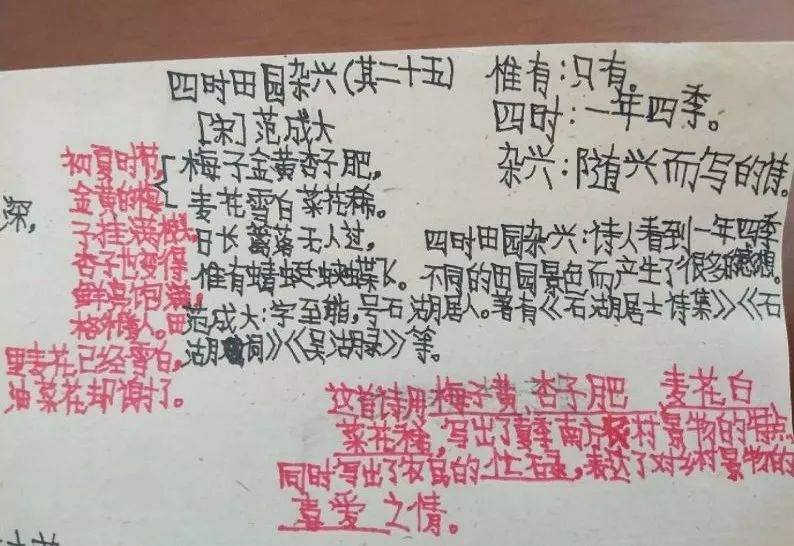 四时田园杂兴(其二十五)
[宋]范成大
梅子金黄杏子肥,
麦花雪白菜花稀。
日长篱落无人过,
惟有蜻蜓蛱蝶长。
范成大:字至能,号石湖居人。著有《石湖居士诗集》《石
湖词》《吴湖录》等。
惟有:只有。
四时:一年四季。
杂兴:随兴而写的诗。
四时田园杂兴:诗人看到一年四季
不同的田园景色而产生了很多的感想。
初夏时节,
金黄的梅
子挂满枝头,
杏子也变得
鲜亮饱满,
格外诱人。田
里麦花已经雪白,
油菜花却谢了。
深,
这首诗用梅子黄、杏子肥、麦花白、
菜花稀,写出了夏季南方农村景物的特点,
同时写出了农民的忙碌,表达了对乡村景物的
喜爱之情。